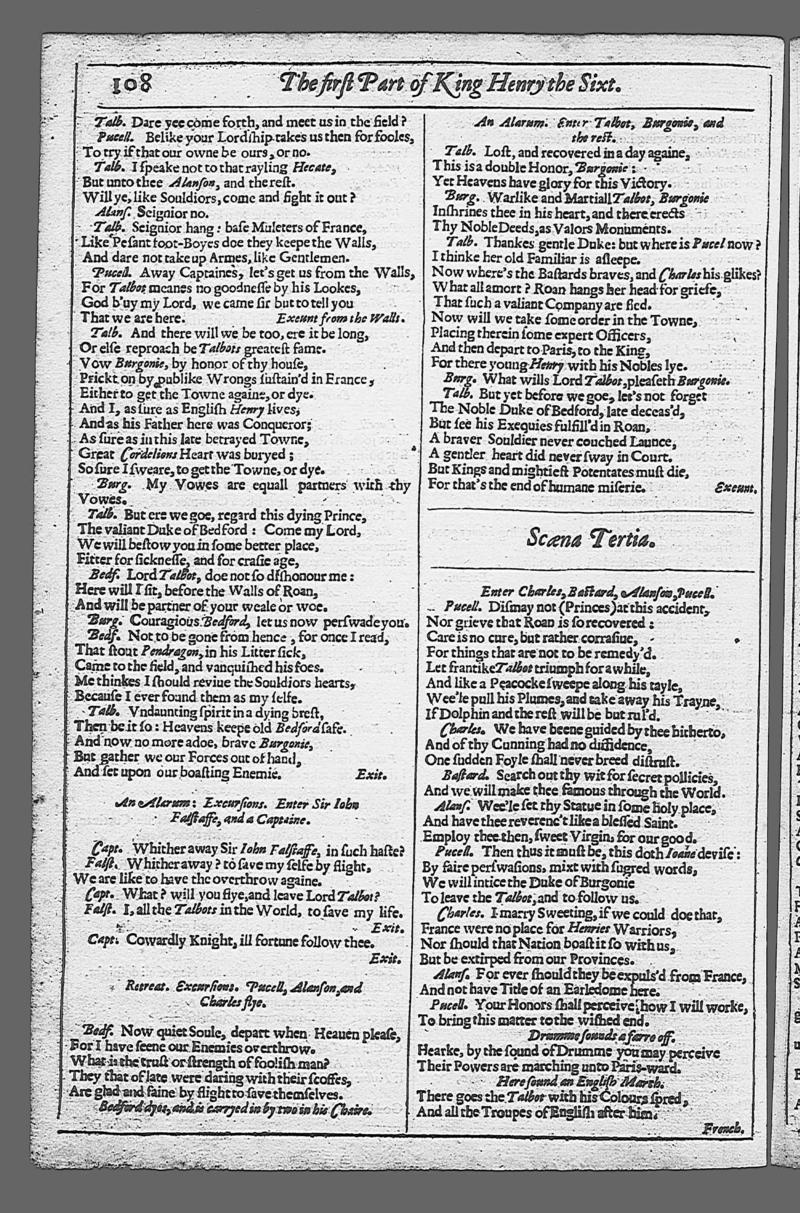 108
The first Part of King Henry the Sixt.
Talb. Dare yee come forth, and meet us in the field?
Pucell. Belike your Lordship takes us then for fooles,
To try if that our owne be ours, or no.
Talb. I speake not to that rayling Hecate,
But unto thee Alanson, and the rest.
Will ye, like Souldiors, come and fight it out?
Alans. Seignior no.
Talb. Seignior hang: base Muleters of France,
Like Pesant foot-Boyes doe they keepe the Walls,
And dare not take up Armes, like Gentlemen.
Pucell. Away Captaines, let's get us from the Walls,
For Talbot meanes no goodnesse by his Lookes,
God b'uy my Lord, we came sir but to tell you
That we are here. Exeunt from the Walls.
Talb. And there will we be too, ere it be long,
Or else reproach be Talbots greatest fame.
Vow Burgonie, by honor of thy house,
Prickt on by publike Wrongs sustain'd in France,
Either to get the Towne againe, or dye.
And I, as sure as English Henry lives,
And as his Father here was Conqueror;
As sure as in this late betrayed Towne,
Great Cordelions Heart was buryed;
So sure I sweare, to get the Towne, or dye.
Burg. My Vowes are equall partners with thy
Vowes.
Talb. But ere we goe, regard this dying Prince,
The valiant Duke of Bedford: Come my Lord,
We will bestow you in some better place,
Fitter for sicknesse, and for crasie age,
Bedf. Lord Talbot, doe not so dishonour me:
Here will I sit, before the Walls of Roan,
And will be partner of your weale or woe.
Burg. Couragious Bedford, let us now perswade you.
Bedf. Not to be gone from hence, for once I read,
That stout Pendragon, in his Litter sick,
Came to the field, and vanquished his foes.
Me thinkes I should reviue the Souldiors hearts,
Because I ever found them as my selfe.
Talb. Vndaunting spirit in a dying brest,
Then be it so: Heavens keepe old Bedford safe.
And now no more adoe, brave Burgonie,
But gather we our Forces out of hand,
And set upon our boasting Enemie. Exit.
An Alarum: Excursions. Enter Sir Iohn
Falstaffe, and a Captaine.
Capt. Whither away Sir Iohn Falstaffe, in such haste?
Falst. Whither away? to save my selfe by flight,
We are like to have the overthrow againe.
Capt. What? will you flye, and leave Lord Talbot?
Falst. I, all the Talbots in the World, to save my life.
Exit.
Capt. Cowardly Knight, ill fortune follow thee.
Exit.
Retreat. Excursions. Pucell, Alanson, and
Charles flye.
Bedf. Now quiet Soule, depart when Heauen please,
For I have seene our Enemies overthrow.
What is the trust or strength of foolish man?
They that of late were daring with their scoffes,
Are glad and faine by flight to save themselves.
Bedford dyes, and is carryed in by two in his Chaire.
An Alarum: Enter Talbot, Burgonie, and
the rest.
Talb. Lost, and recovered in a day againe,
This is a double Honor, Burgonie:
Yet Heavens have glory for this Victory.
Burg. Warlike and Martiall Talbot, Burgonie
Inshrines thee in his heart, and there erects
Thy Noble Deeds, as Valors Monuments.
Talb. Thankes gentle Duke: but where is Pucel now?
I thinke her old Familiar is asleepe.
Now where's the Bastards braves, and Charles his glikes?
What all amort? Roan hangs her head for griefe,
That such a valiant Company are fled.
Now will we take some order in the Towne,
Placing therein some expert Officers,
And then depart to Paris, to the King,
For there young Henry with his Nobles lye.
Burg. What wills Lord Talbot, pleaseth Burgonie.
Talb. But yet before we goe, let's not forget
The Noble Duke of Bedford, late deceas'd,
But see his Exequies fulfill'd in Roan,
A braver Souldier never couched Launce,
A gentler heart did never sway in Court.
But Kings and mightiest Potentates must die,
For that's the end of humane miserie. Exeunt.
Scæna Tertia.
Enter Charles, Bastard, Alanson, Pucell.
Pucell. Dismay not (Princes) at this accident,
Nor grieve that Roan is so recovered:
Care is no cure, but rather corrasiue,
For things that are not to be remedy'd.
Let frantike Talbot triumph for a while,
And like a Peacocke sweepe along his tayle,
Wee'le pull his Plumes, and take away his Trayne,
If Dolphin and the rest will be but rul'd.
Charles. We have beene guided by thee hitherto,
And of thy Cunning had no diffidence,
One sudden Foyle shall never breed distrust.
Bastard. Search out thy wit for secret pollicies,
And we will make thee famous through the World.
Alans. Wee'le set thy Statue in some holy place,
And have thee reverenc't like a blessed Saint.
Employ thee then, sweet Virgin, for our good.
Pucell. Then thus it must be, this doth Ioane devise:
By faire perswasions, mixt with sugred words,
We will intice the Duke of Burgonie
To leave the Talbot, and to follow us.
Charles. I marry Sweeting, if we could doe that,
France were no place for Henries Warriors,
Nor should that Nation boast it so with us,
But be extirped from our Provinces.
Alans. For ever should they be expuls'd from France,
And not have Title of an Earledome here.
Pucell. Your Honors shall perceive how I will worke,
To bring this matter to the wished end.
Drumme sounds a farre off.
Hearke, by the sound of Drumme you may perceive
Their Powers are marching unto Paris-ward.
Here sound an English March.
There goes the Talbot with his Colours spred,
And all the Troupes of English after him.
French.